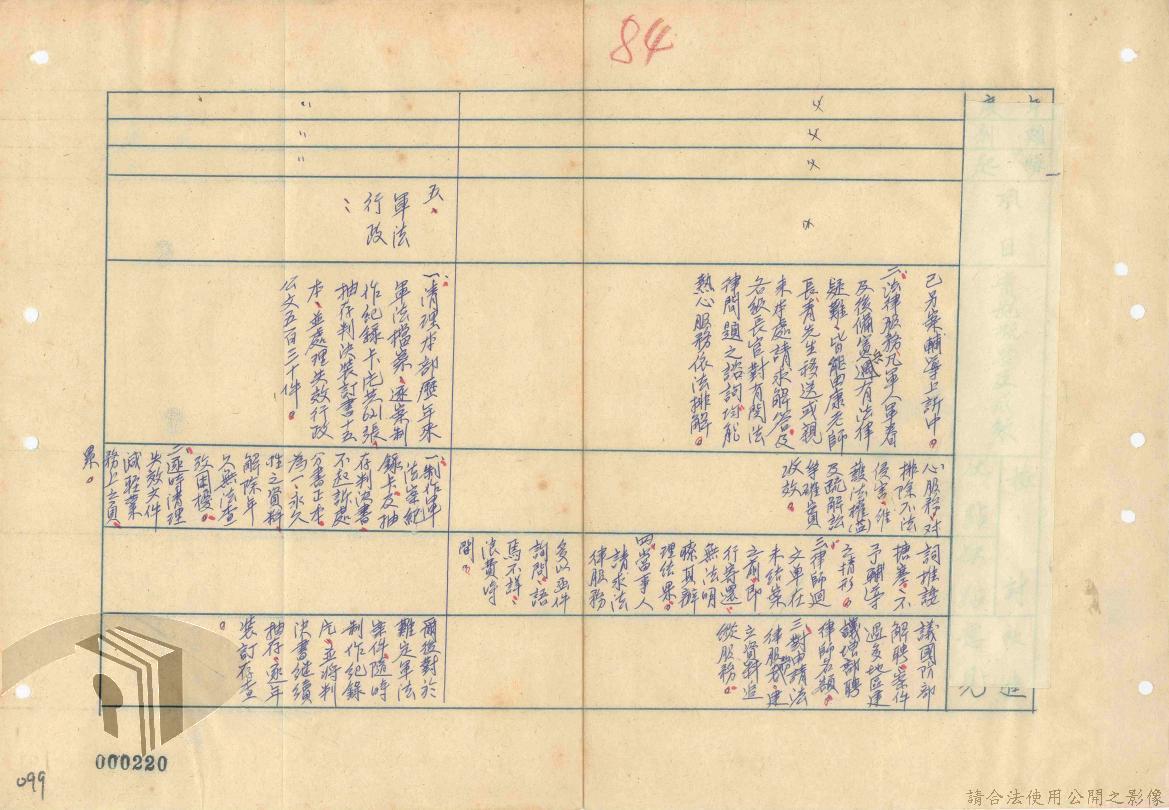 84
五、
軍法
行政
：
己另案輔導上訴中。
二、法律服務，凡軍人軍眷
及後備軍人遇有法律
疑難，皆能由康老師
長青先生移送或親
來本處請求解答，及
各級長官對有關法
律問題之諮詢，均能
熱心服務依法排解。
一、清理本部歷年來
軍法檔案，逐案制
作紀錄卡片共
抽存判決裝訂書十五
本，並處理失效行政
公文五百三十件。
心服務，对
排除不法
侵害，維
護法權益
及疏解訟
累確實
收效。
一、制作軍
法案紀
錄卡及抽
存判決書
不起訴處
分書正本
為一永久
性之資料
解除年
久無法查
攷困擾。
二、逐時清理
失效文件
減輕業
務上之負
累。
詞推諉
搪塞，不
予輔導
之情形。
三、律師迴
文单在
未結案
之前，即
行寄還，
無法明
瞭其辦
理结果。
四、當事人
請求法
律服務
多以函件
詢問，語
焉不詳，
浪費時
間。
議國防部
解聘，案件
過多地區建
議增部聘
律師名額。
三、對申請法
律服務，建
立資料追
縱服務。
爾後對於
難定軍法
案件，隨時
制作紀錄
片，並將判
決書继續
抽存，逐年
裝訂存查
。
000220
099
請合法使用公開之影像